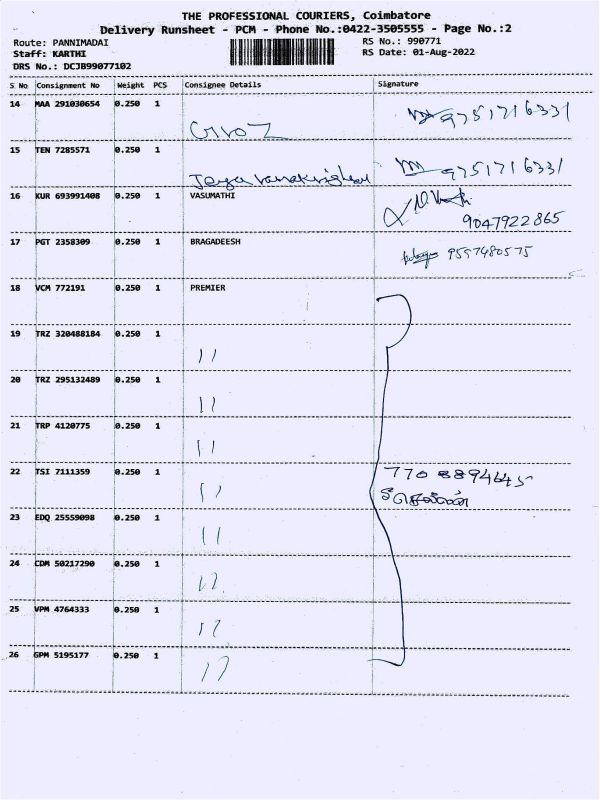 THE PROFESSIONAL COURIERS, Coimbatore
Delivery Runsheet - PCM - Phone No.:0422-3505555 - Page No.:2
Route: PANNIMADAI RS No.: 990771
Staff: KARTHI RS Date: 01-Aug-2022
DRS No.: DCJB99077102
S No Consignment No Weight PCS Consignee Details Signature
14 MAA 291030654 0.250 1 9751716331
15 TEN 7285571 0.250 1 9751716331
16 KUR 693991408 0.250 1 VASUMATHI
9047922865
17 PGT 2358309 0.250 1 BRAGADEESH 9597480575
18 VCM 772191 0.250 1 PREMIER
19 TRZ 320488184 0.250 1
11
20 TRZ 295132489 0.250 1
11
21 TRP 4120775 0.250 1
11
22 TSI 7111359 0.250 1
11
23 EDQ 25559098 0.250 1
11
24 CDM 50217290 0.250 1
11
25 VPM 4764333 0.250 1
11
26 GPM 5195177 0.250 1
11